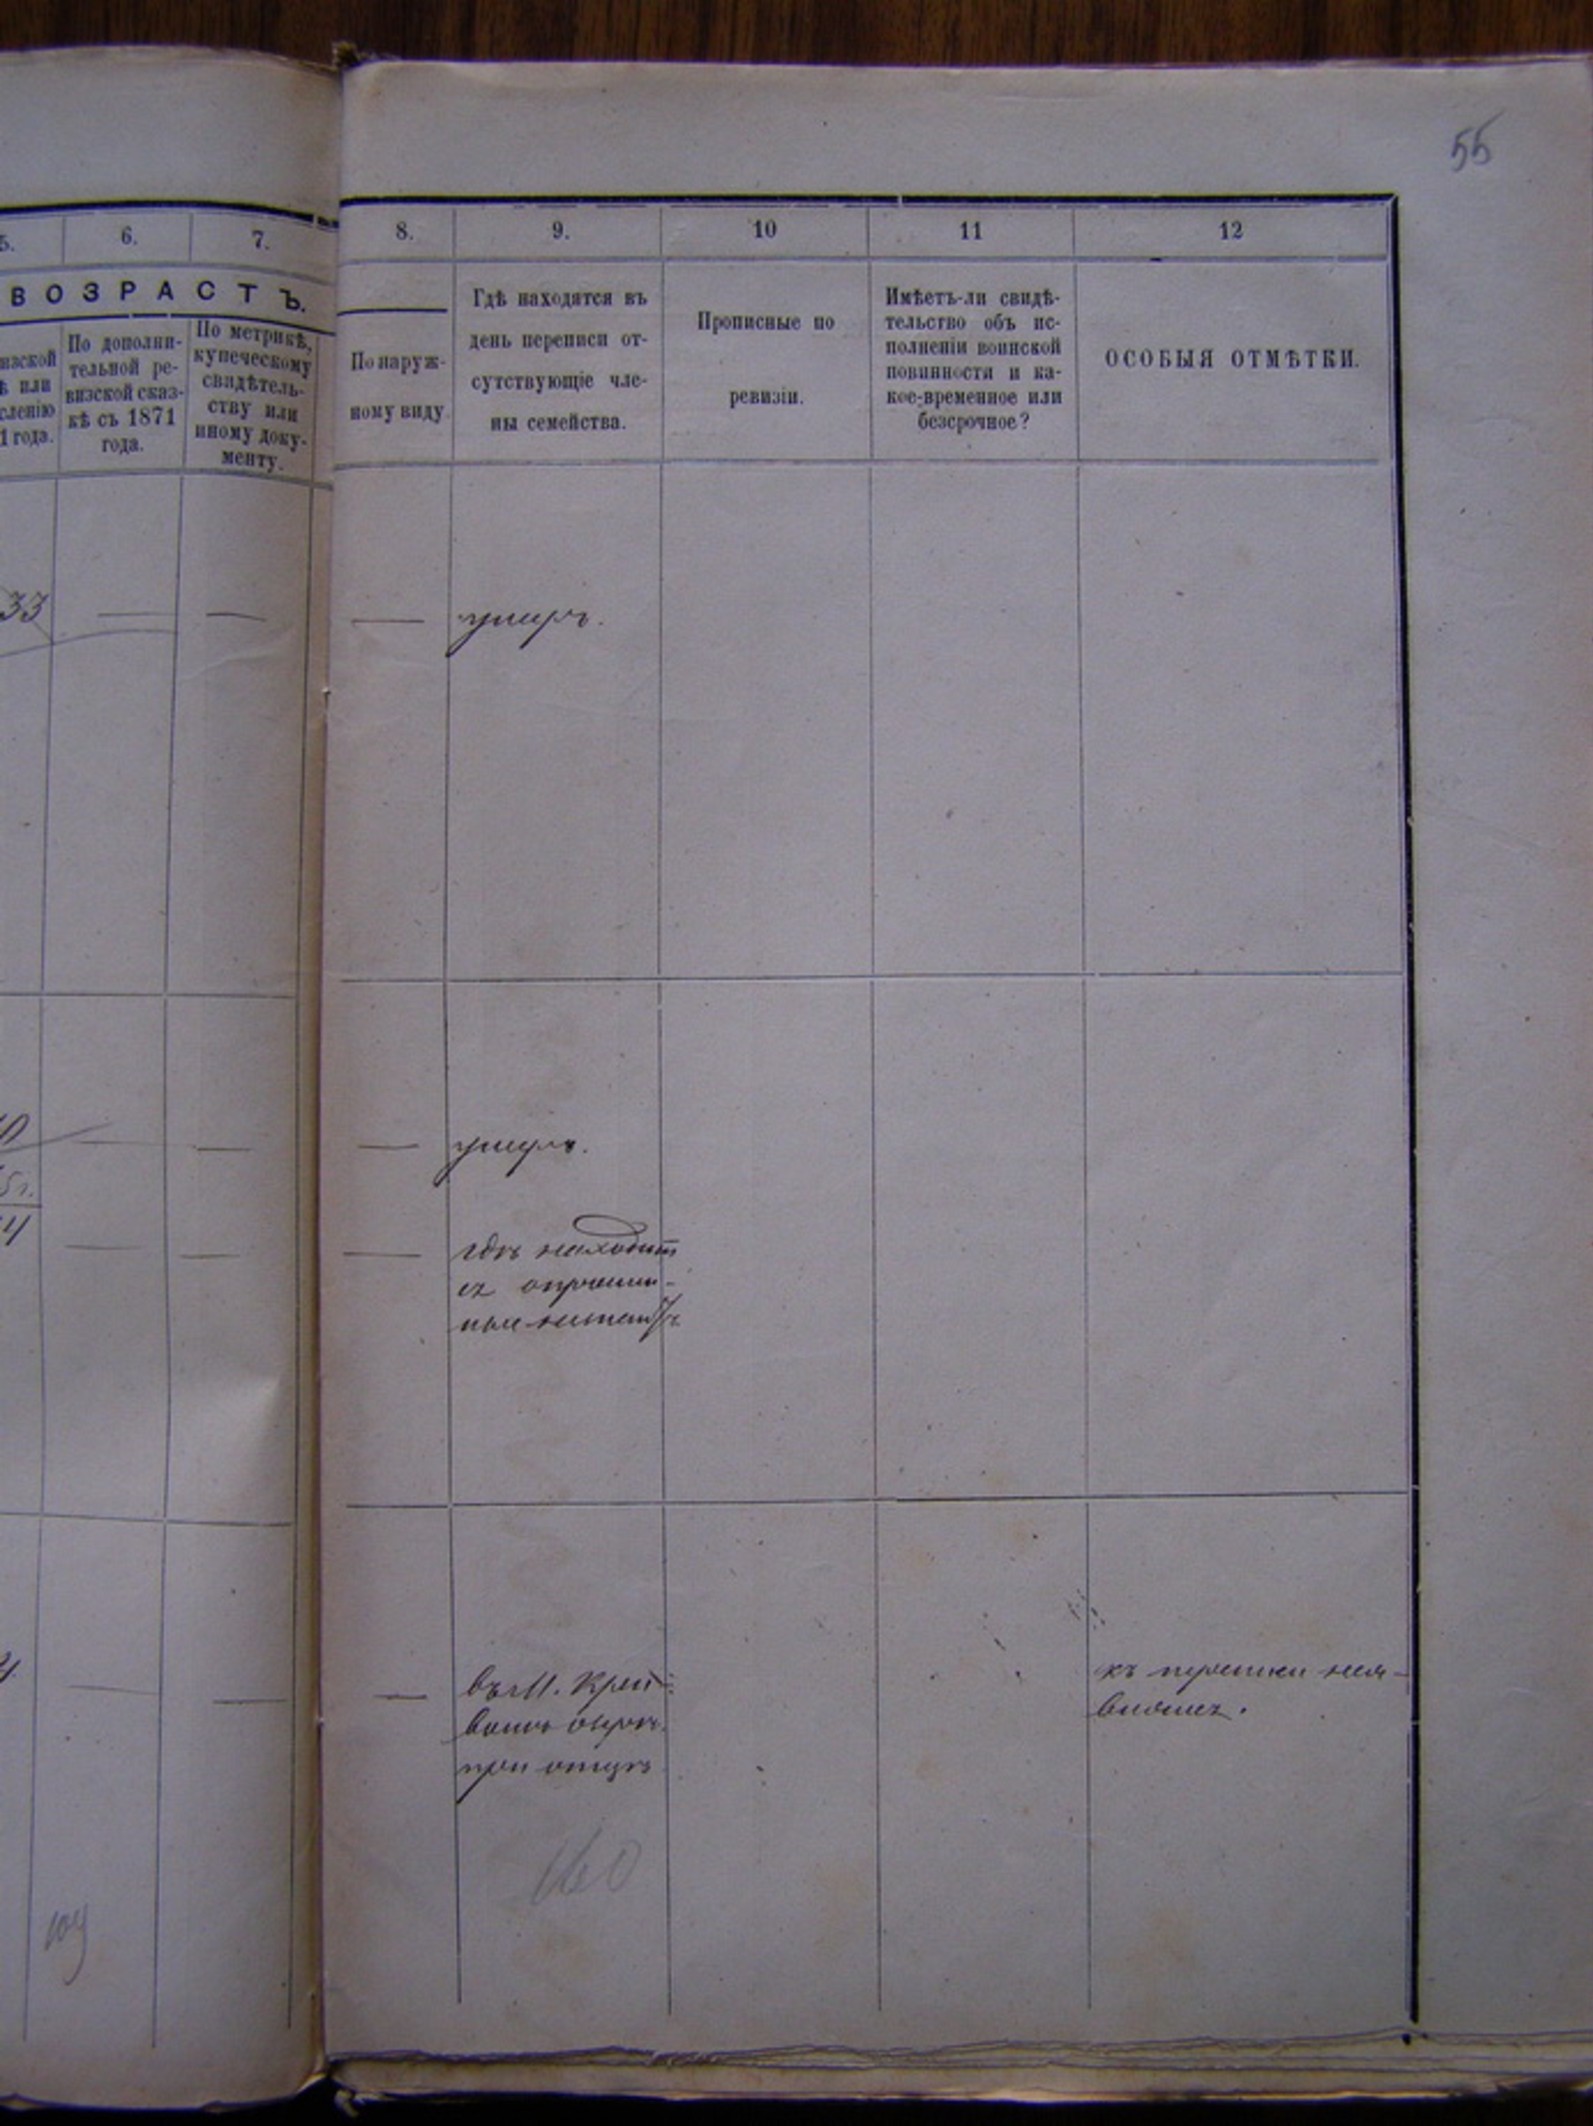 55
5.
6.
7.
ВОЗРАСТЪ.
По дополни-
тельной ре-
визской сказ-
кѣ съ 1871
года.
По метрикѣ,
купеческому
свидѣтель-
ству или
иному доку-
менту.
8.
9.
10
11
12
По наруж-
ному виду.
Гдѣ находятся въ
день переписи от-
сутствующіе чле-
ны семейства.
Прописные по
ревизіи.
Имѣетъ-ли свидѣ-
тельство объ ис-
полненіи воинской
повинности и ка-
кое-временное или
безсрочное?
ОСОБЫЯ ОТМѢТКИ.
33
умеръ.
умеръ.
гдѣ находит
ся
въ М.
при отцѣ
къ переписи неяв-
160